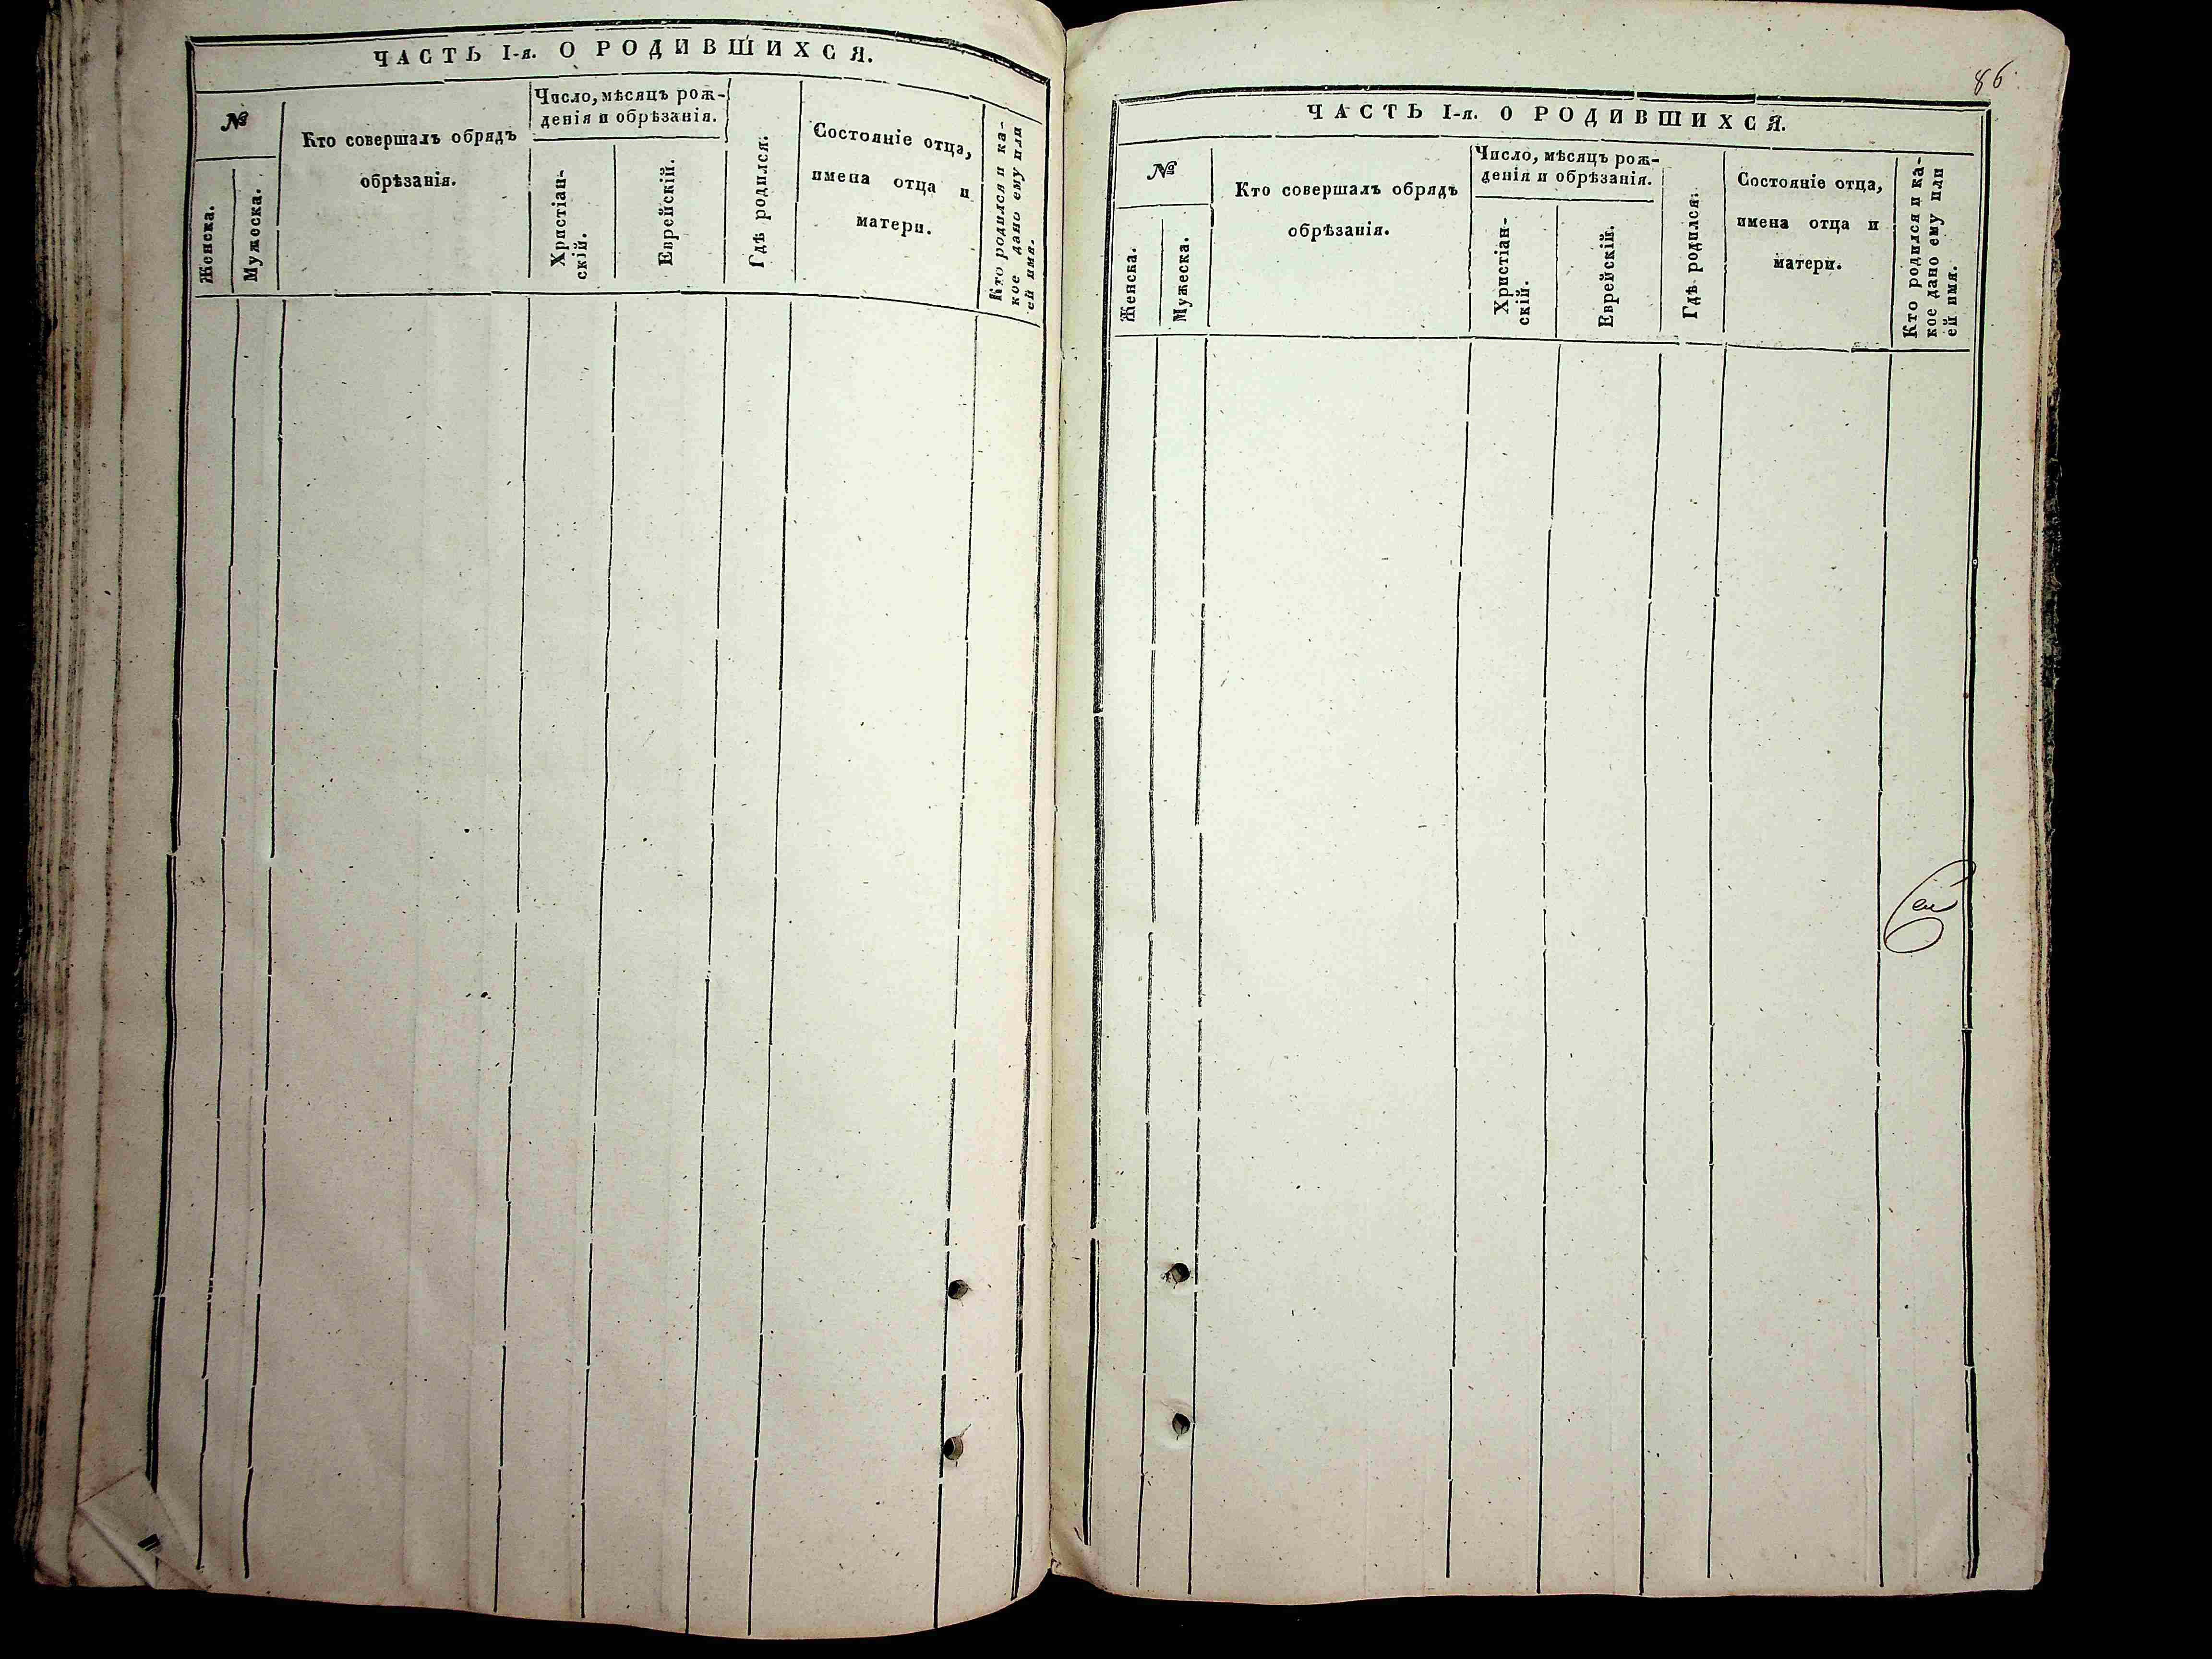 ЧАСТЬ I-я. О РОДИВШИХСЯ.
№
Женска.
Мужеска.
Кто совершалъ обрядъ
обрѣзанія.
Число, мѣсяцъ рож-
денія и обрѣзанія.
Христіан-
скій.
Еврейскій.
Гдѣ родился.
Состояніе отца,
имена отца и
матери.
Кто родился и ка-
кое дано ему или
ей имя.
86.
ЧАСТЬ I-я. О РОДИВШИХСЯ.
№
Женска.
Мужеска.
Кто совершалъ обрядъ
обрѣзанія.
Число, мѣсяцъ рож-
денія и обрѣзанія.
Христіан-
скій.
Еврейскій.
Гдѣ родился.
Состояніе отца,
имена отца и
матери.
Кто родился и ка-
кое дано ему или
ей имя.